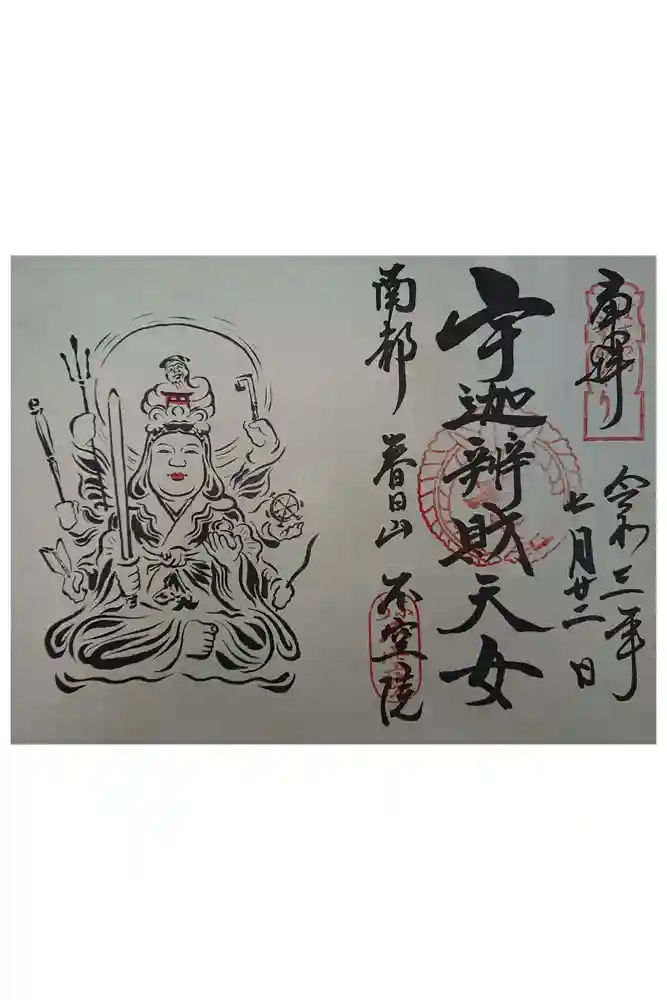 奉拝
令和三年
七月廿二日
宇迦辨財天女
南都 春日山 不空院